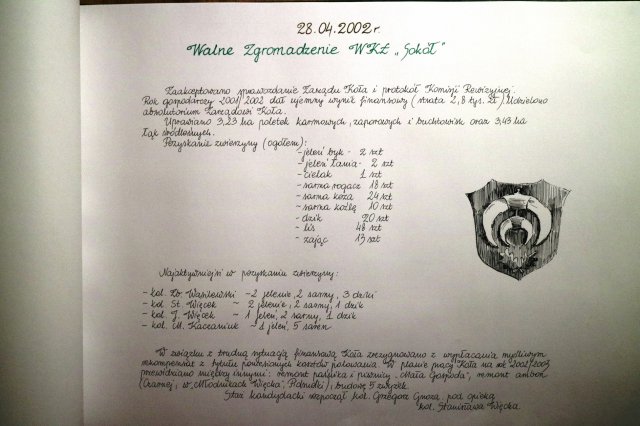 28.04.2002r.
Walne Zgromadzenie WKŁ „Sokół”
Zaakceptowano sprawozdanie Zarządu Koła i protokół Komisji Rewizyjnej.
Rok gospodarczy 2001/2002 dał ujemny wynik finansowy (strata 2,8 tys. zł). Udzielono
absolutorium Zarządowi Koła.
Uprawiano 3,23 ha poletek karmowych, zaporowych i buchtowisk oraz 3,43 ha
łąk śródleśnych.
Pozyskanie zwierzyny (ogółem):
- jeleń byk - 2 szt
- jeleń łania - 2 szt
- cielak 1 szt
- sarna rogacz 18 szt
- sarna koza 24 szt
- sarna koźlę 10 szt
- dzik 20 szt
- lis 48 szt
- zając 13 szt
Najaktywniejsi w pozyskaniu zwierzyny:
- kol. Wasilewski - 2 jelenie, 2 sarny, 3 dziki
- kol. St. Więcek ~ 2 jelenie, 2 sarny, 1 dzik
- kol. J. Więcek ~ 1 jeleń, 2 sarny, 1 dzik
- kol. M. Kaczaniuk ~ 1 jeleń, 5 saren
W związku z trudną sytuacją finansową Koła zrezygnowano z wypłacania myśliwym
rekompensat z tytułu poniesionych kosztów polowania. W planie pracy Koła na rok 2002/2003
przewidziano między innymi: remont paśnika i piwnicy „Mała Gospoda”, remont ambon
(Czarnej, w „Młodnikach Więcka”, ), budowę 5 zwyżek.
Staż kandydacki rozpoczął kol. Grzegorz Gnoza pod opieką
kol. Stanisława Więcka.